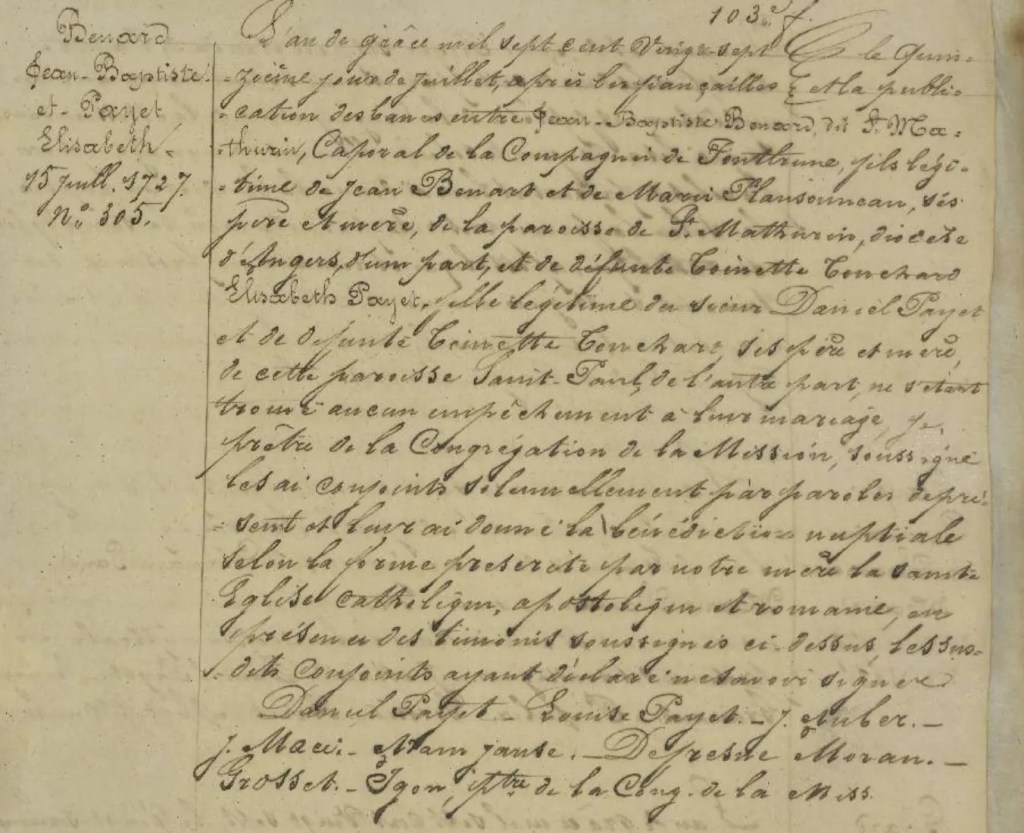 103e f.
Benard
Jean-Baptiste
et Payet
Elisabeth.
15 juill. 1727.
No. 305.
L'an de grâce mil sept cent Vingt-sept le quin-
-zième jour de juillet, après les fiançailles et la publi-
-cation des bancs entre Jean-Baptiste Benard, dit St. Ma-
-thurin, Caporal de la Compagnie de Fontbrune, fils légi-
-time de Jean Benart et de Marie, ses
père et mère, de la paroisse de St. Mathurin, diocèse
d'Angers, d'une part, et de défunte Toinette Touchard
Elisabeth Payet, fille légitime du sieur Daniel Payet
et de defunte Toinette Touchart, ses père et mère,
de cette paroisse Saint-Paul, de l'autre part, ne s'étant
trouvé aucun empêchement à leur mariage, Je,
prêtre de la Congrégation de la Mission, soussigné
les ai conjoints solennellement par paroles de pré-
-sent et leur ai donné la bénédiction nuptiale
selon la forme prescrite par notre mère la sainte
Eglise catholique, apostolique et romaine, en
présence des témoins soussignés ci-dessus, les sus-
-dits conjoints ayant déclaré ne savoir signer
Daniel Payet - Louise Payet. - J. Auber. -
J. Macé. - Adam Janse. - Defresne Moran. -
Grosset. - Igon, ptre de la Cong. de la Miss